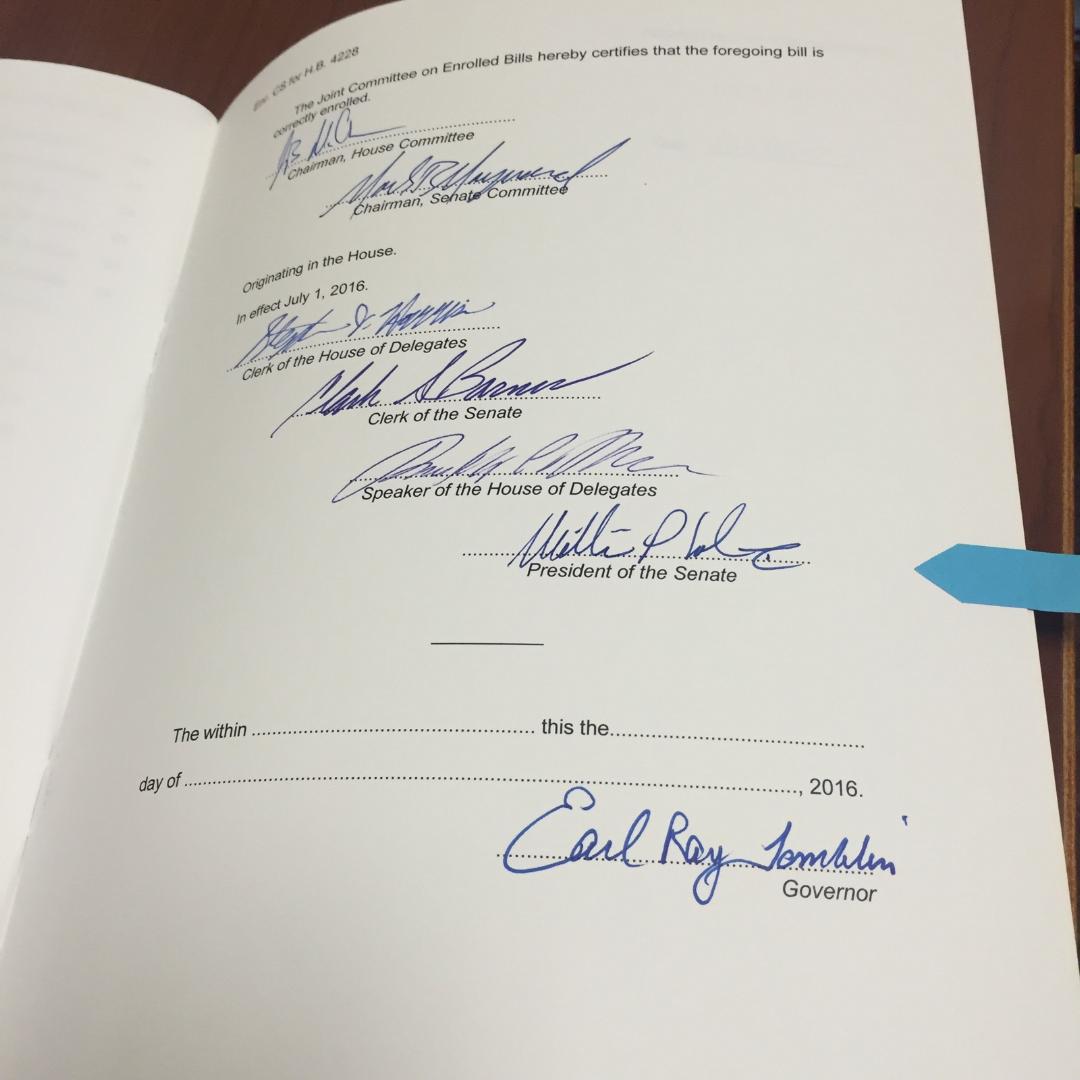 Enr. CS for H.B. 4228
The Joint Committee on Enrolled Bills hereby certifies that the foregoing bill is
correctly enrolled.
Chairman, House Committee
Chairman, Senate Committee
Originating in the House.
In effect July 1, 2016.
Clerk of the House of Delegates
Clerk of the Senate
Speaker of the House of Delegates
President of the Senate
The within ........................................................ this the...................................................
day of ..........................................................................................................................., 2016.
Earl Ray Tomblin
Governor